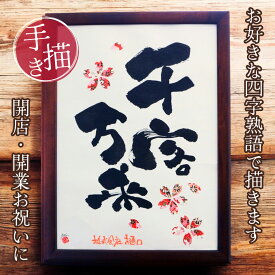 お好きな四字熟語で描きます
手描き
千客
万来
開店・開業お祝いに